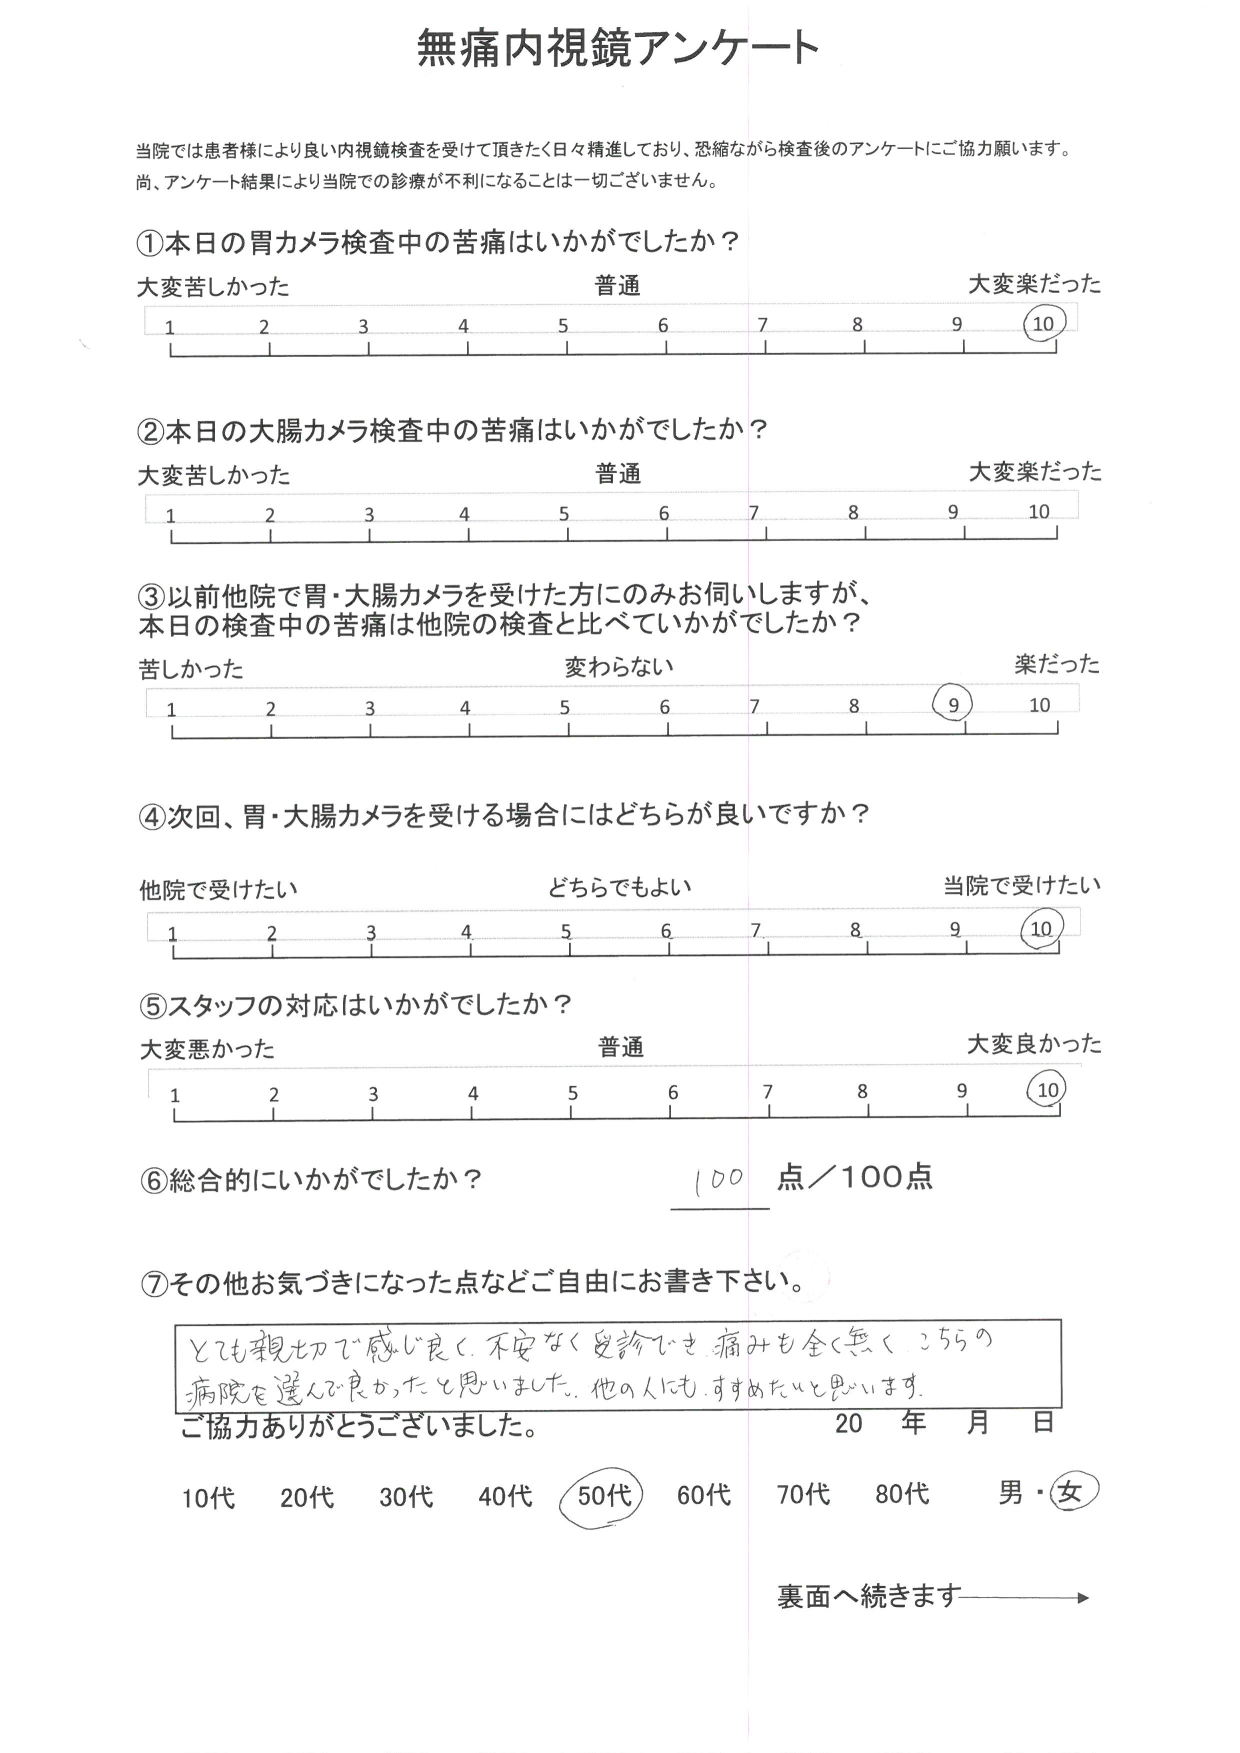 無痛内視鏡アンケート
当院では患者様により良い内視鏡検査を受けて頂きたく日々精進しており、恐縮ながら検査後のアンケートにご協力願います。
尚、アンケート結果により当院での診療が不利になることは一切ございません。
①本日の胃カメラ検査中の苦痛はいかがでしたか？
大変苦しかった 普通 大変楽だった
1 2 3 4 5 6 7 8 9 10
②本日の大腸カメラ検査中の苦痛はいかがでしたか？
大変苦しかった 普通 大変楽だった
1 2 3 4 5 6 7 8 9 10
③以前他院で胃・大腸カメラを受けた方にのみお伺いしますが、
本日の検査中の苦痛は他院の検査と比べていかがでしたか？
苦しかった 変わらない 楽だった
1 2 3 4 5 6 7 8 9 10
④次回、胃・大腸カメラを受ける場合にはどちらが良いですか？
他院で受けたい どちらでもよい 当院で受けたい
1 2 3 4 5 6 7 8 9 10
⑤スタッフの対応はいかがでしたか？
大変悪かった 普通 大変良かった
1 2 3 4 5 6 7 8 9 10
⑥総合的にいかがでしたか？ 100 点／100点
⑦その他お気づきになった点などご自由にお書き下さい。
とても親切で感じ良く、不安なく受診でき、痛みも全く無く、こちらの
病院を選んで良かったと思いました。他の人にも、すすめたいと思います。
ご協力ありがとうございました。 20 年 月 日
10代 20代 30代 40代 50代 60代 70代 80代 男・女
裏面へ続きます